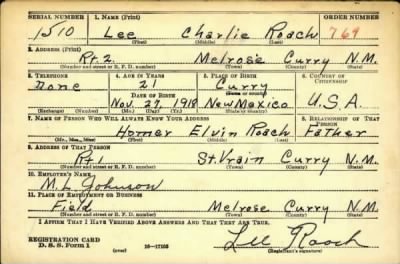 SERIAL NUMBER 1. NAME (Print) ORDER NUMBER
1510 Lee Charlie Roach 769
(First) (Middle) (Last)
2. ADDRESS (Print)
Rt. 2 Melrose Curry N.M.
(Number and street or R. F. D. number) (Town) (County) (State)
3. TELEPHONE 4. AGE IN YEARS 5. PLACE OF BIRTH 6. COUNTRY OF CITIZENSHIP
None 21 Curry
DATE OF BIRTH (Town or county)
Nov. 27, 1918 New Mexico U.S.A.
(Exchange) (Number) (Mo.) (Day) (Yr.) (State or country)
7. NAME OF PERSON WHO WILL ALWAYS KNOW YOUR ADDRESS 8. RELATIONSHIP OF THAT PERSON
Homer Elvin Roach Father
(Mr., Mrs., Miss) (First) (Middle) (Last)
9. ADDRESS OF THAT PERSON
Rt 1 St. Vrain Curry N.M.
(Number and street or R. F. D. number) (Town) (County) (State)
10. EMPLOYER'S NAME
M. L. Johnson
11. PLACE OF EMPLOYMENT OR BUSINESS
Field Melrose Curry N.M.
(Number and street or R. F. D. number) (Town) (County) (State)
I AFFIRM THAT I HAVE VERIFIED ABOVE ANSWERS AND THAT THEY ARE TRUE.
REGISTRATION CARD Lee Roach
D. S. S. Form 1 (over) 16—17105 (Registrant's signature)